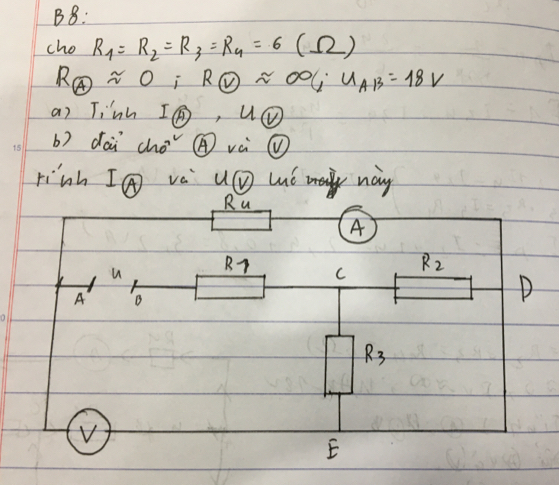 B8:
cho R1 = R2 = R3 = R4 = 6 (Ω)
RA ≈ 0 ; RV ≈ ∞ ; UAB = 18 V
a) Tính IA , UV
b) đổi chỗ A và V
tính IA và UV lúc này
R4
A
U
R1
C
R2
D
A
B
R3
V
E